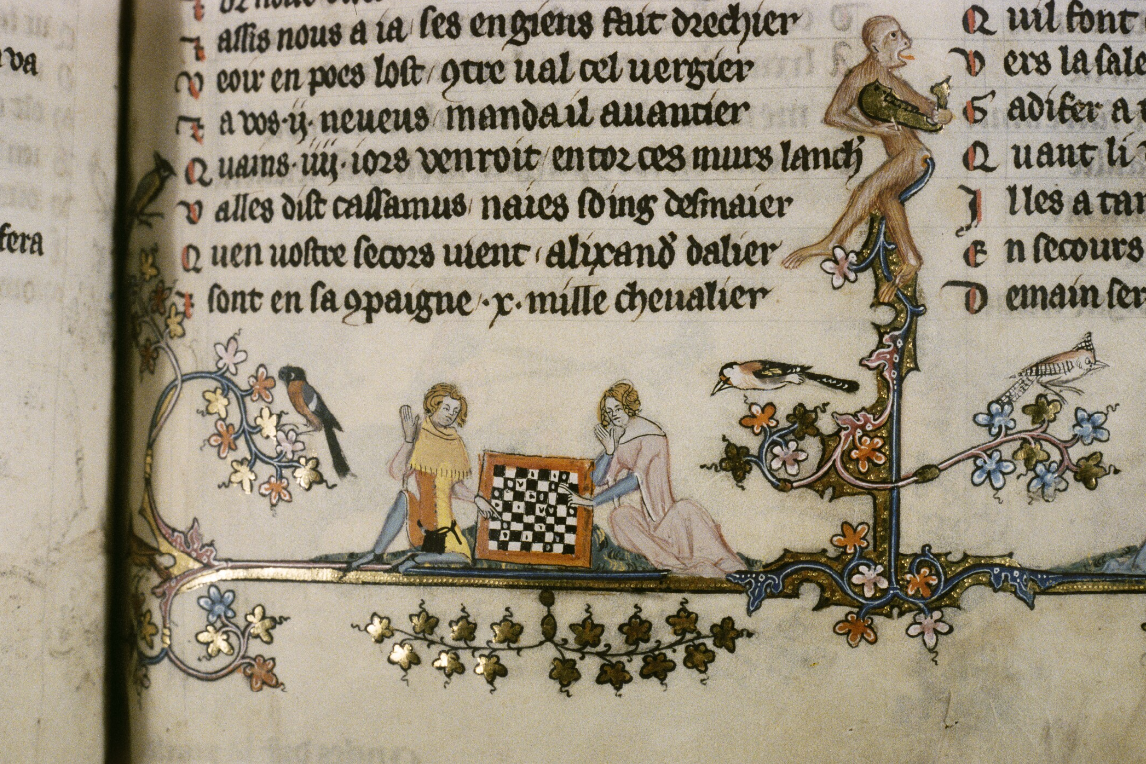 ⁊ assis nous a ia ses engiens fait drechier
veoir en poes lost ꝯtre ual cel uergier
⁊ a vos .ij. neueus manda il auantier
Quains .iiij. iors venroit entor ces murs lanch
valles dist cassamus naies soing desmaier
Quen uostre secors uient alixand̉ dalier
⁊ sont en sa ꝯpaigne .x. mille cheualier
va
fera
Quil font
vers la sale
Gadifer a
Quant li
Illes a
En secours
Demain